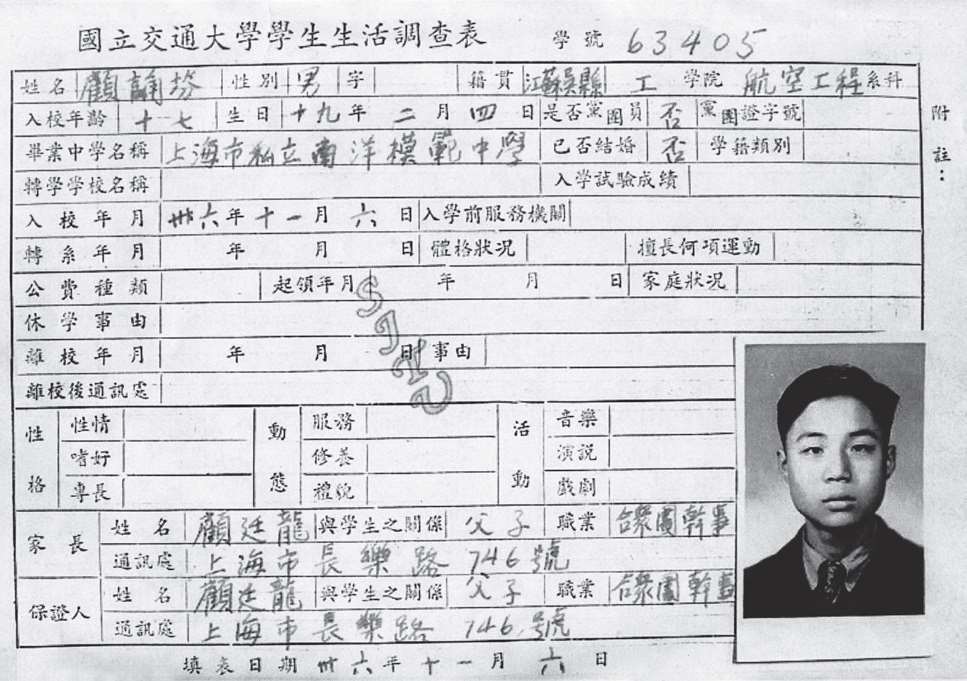 國立交通大學學生生活調查表 學號 63405
姓名 顧誦芬 性別 男 字 籍貫 江蘇吳縣 工 學院 航空工程 系科
入校年齡 十七 生日 十九年 二月 四日 是否黨團員 否 黨團證字號
畢業中學名稱 上海市私立南洋模範中學 已否結婚 否 學籍類別
轉學學校名稱 入學試驗成績
入校年月 卅六年十一月六日 入學前服務機關
轉系年月 年 月 日 體格狀況 擅長何項運動
公費種類 起領年月 年 月 日 家庭狀況
休學事由
離校年月 年 月 日 事由
離校後通訊處
性格 性情 動態 服務 活動 音樂
嗜好 修養 演説
專長 禮貌 戲劇
家長 姓名 顧廷龍 與學生之關係 父子 職業 合衆圖幹事
通訊處 上海市長樂路746號
保證人 姓名 顧廷龍 與學生之關係 父子 職業 合衆圖幹事
通訊處 上海市長樂路746號
填表日期 卅六年十一月六日
附註：